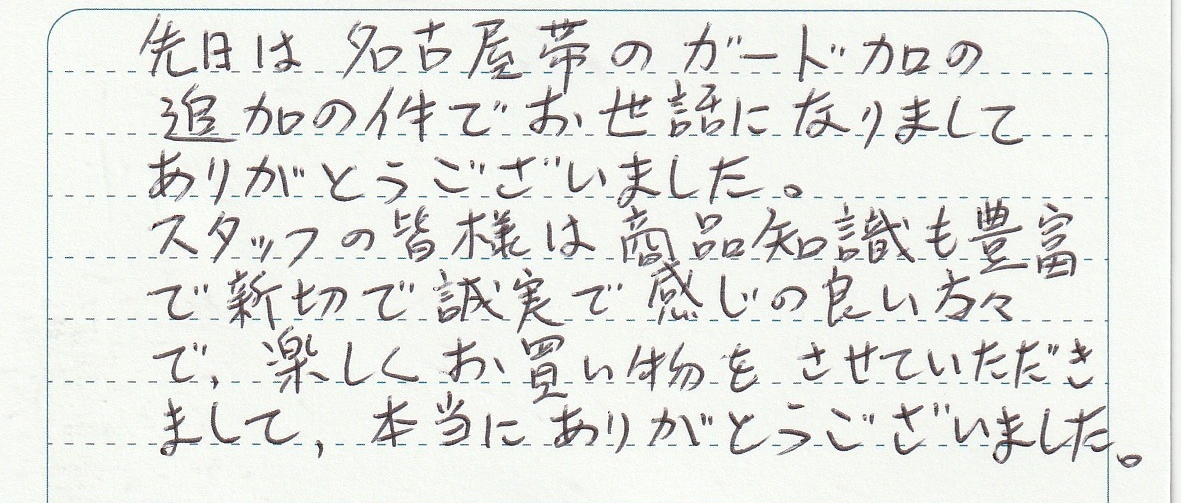 先日は名古屋帯のガード加の
追加の件でお世話になりまして
ありがとうございました。
スタッフの皆様は商品知識も豊富
で新切で誠実で感じの良い方々
で、楽しくお買い物をさせていただき
まして、本当にありがとうございました。